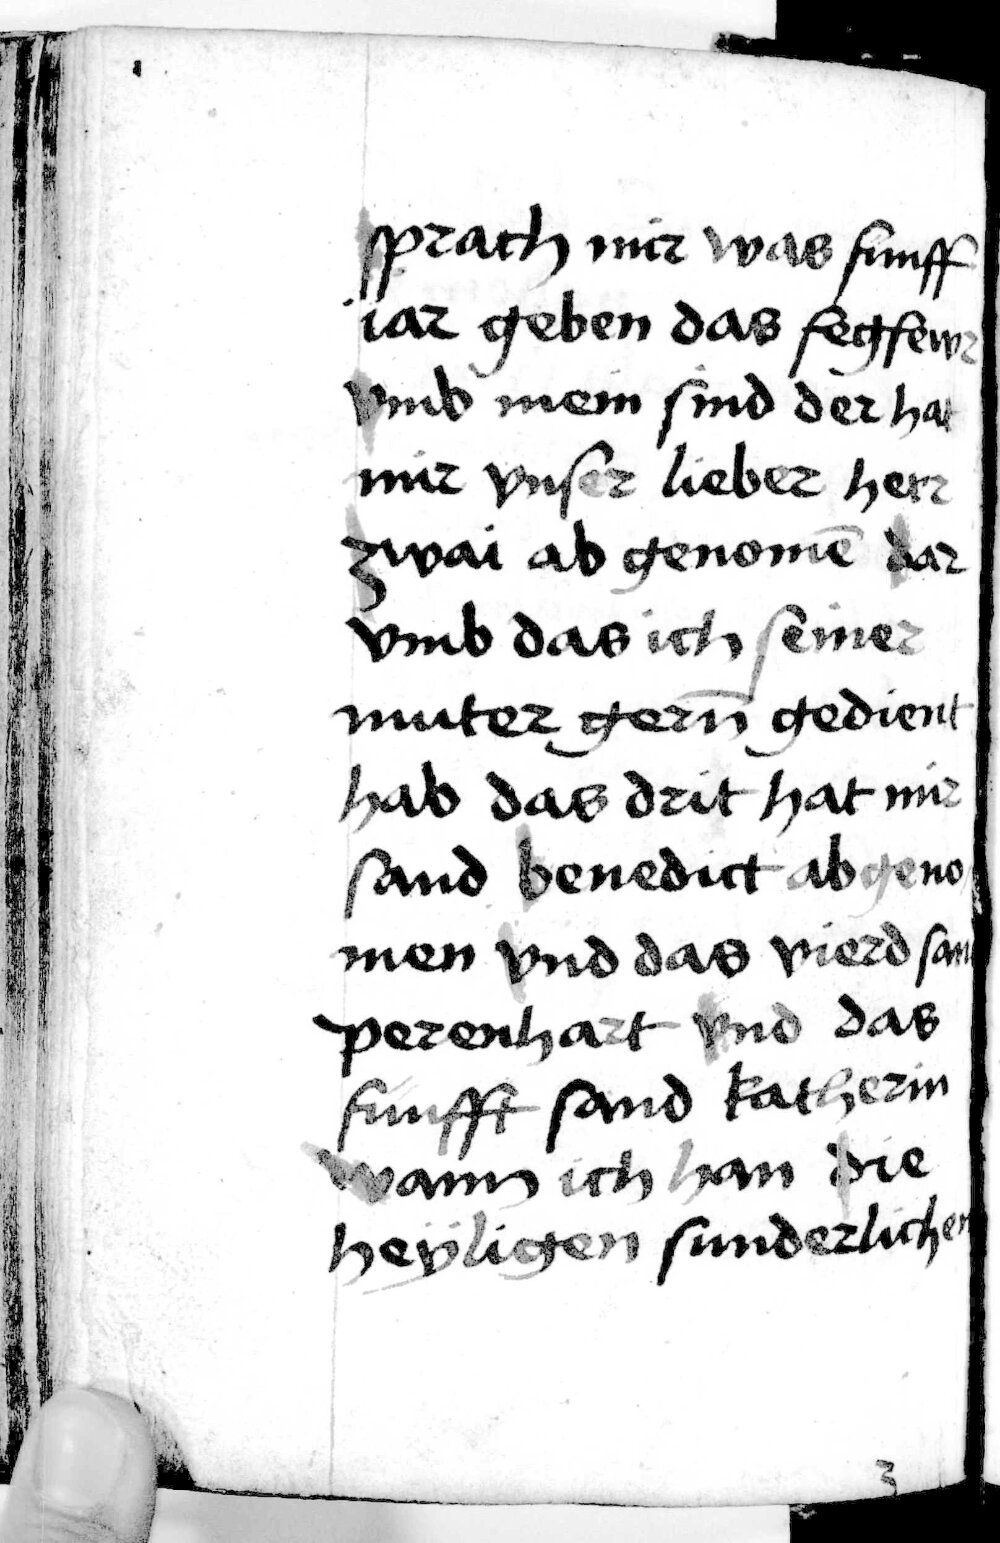 sprach mir was funff
iar geben das fegfewr
vmb mein sind der hat
mir vnser lieber herr
zwai ab genomē dar
vmb das ich seiner
muter gern̄ gedient
hab das drit hat mir
sand benedict ab geno
men vnd das vierd san
perenhart vnd das
funfft sand katherin
wann ich han die
heÿligen sunderlichen